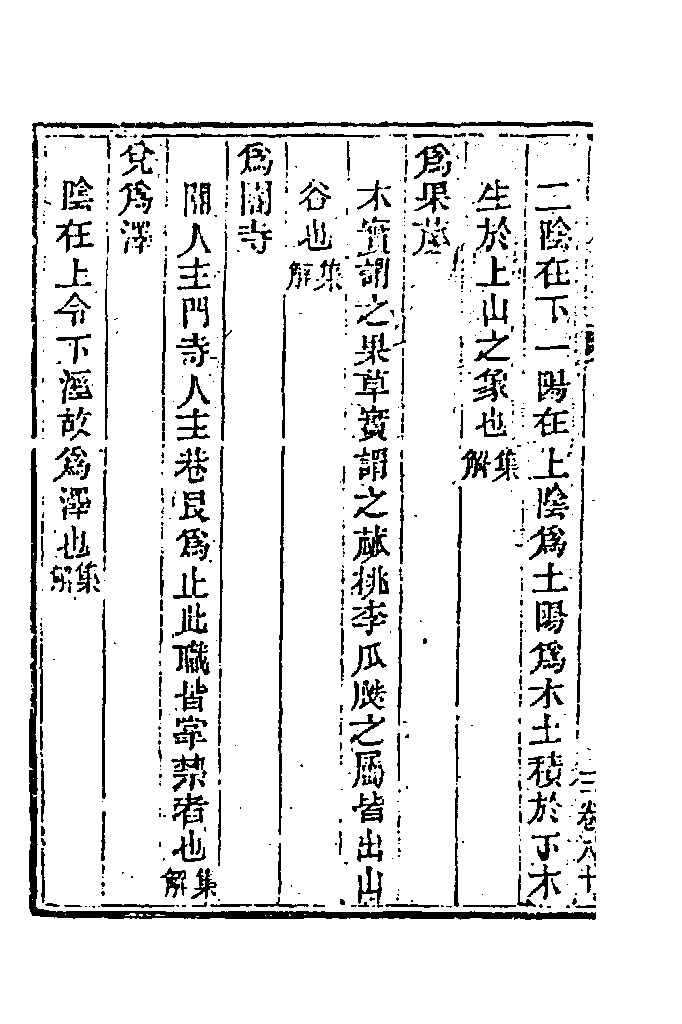 二陰在下一陽在上陰爲土陽爲木土積於下木
生於上山之象也集解
爲果蓏
木實謂之果草實謂之蓏桃李瓜瓞之屬皆出山
谷也集解
爲閽寺
閽人主門寺人主巷艮爲止此職皆掌禁者也集解
兌爲澤
陰在上令下溼故爲澤也集解
卷八十